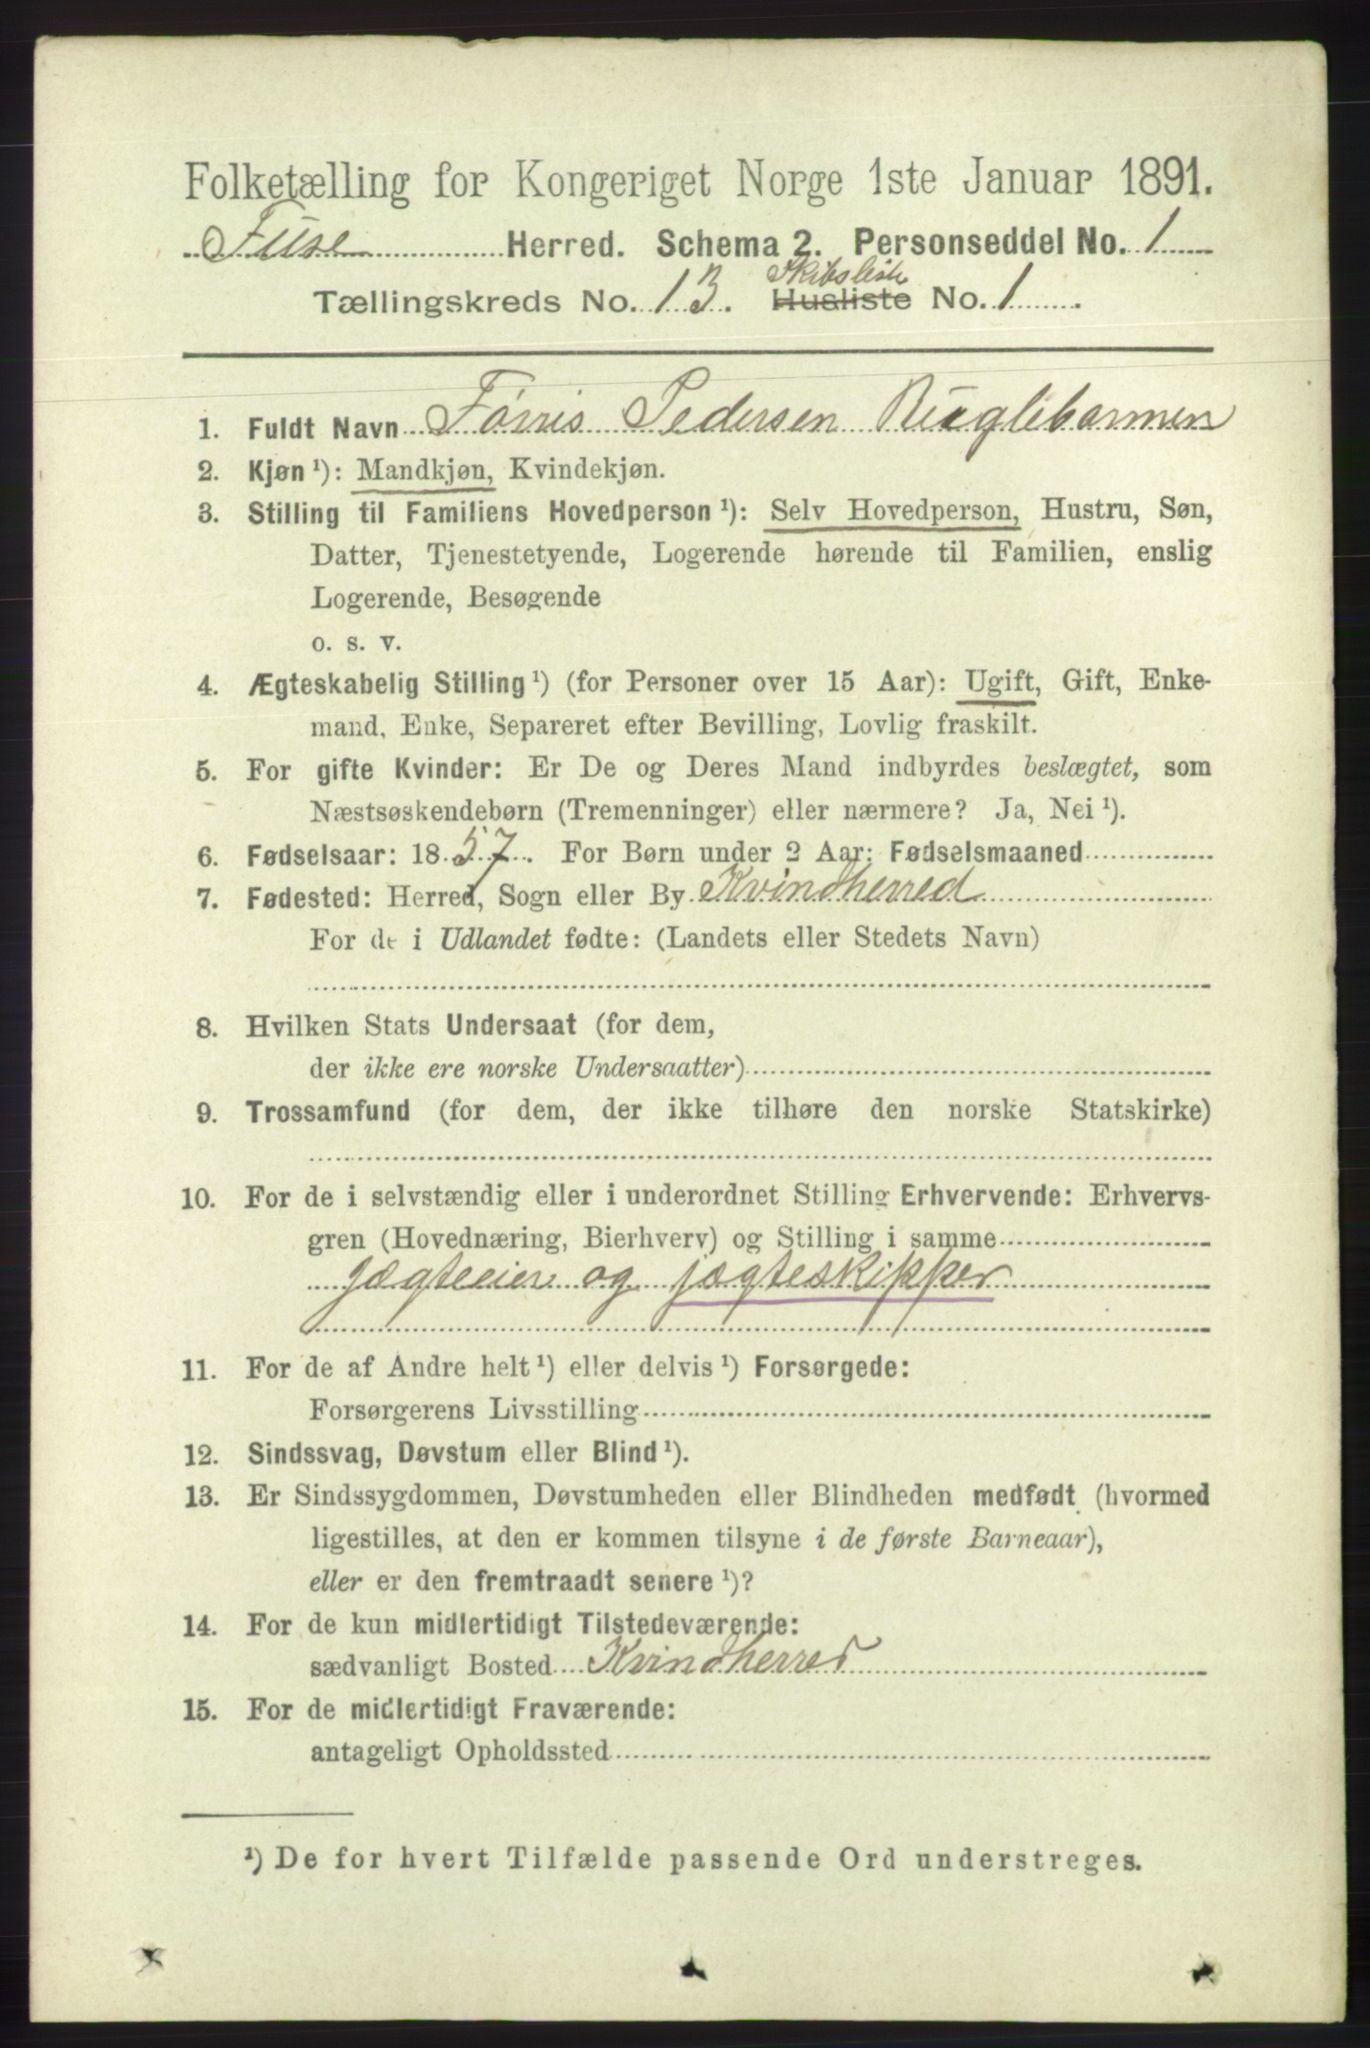 Folketælling for Kongeriget Norge 1ste Januar 1891.
Fuse Herred. Schema 2. Personseddel No. 1
Skibsliste
Tællingskreds No. 13. Husliste No. 1.
1. Fuldt Navn Tørris Pedersen Ruglebarmen
2. Kjøn ¹): Mandkjøn, Kvindekjøn.
3. Stilling til Familiens Hovedperson ¹): Selv Hovedperson, Hustru, Søn,
Datter, Tjenestetyende, Logerende hørende til Familien, enslig
Logerende, Besøgende
o. s. v.
4. Ægteskabelig Stilling ¹) (for Personer over 15 Aar): Ugift, Gift, Enke-
mand, Enke, Separeret efter Bevilling, Lovlig fraskilt.
5. For gifte Kvinder: Er De og Deres Mand indbyrdes beslægtet, som
Næstsøskendebørn (Tremenninger) eller nærmere? Ja, Nei ¹).
6. Fødselsaar: 1857. For Børn under 2 Aar: Fødselsmaaned
7. Fødested: Herred, Sogn eller By Kvindherred
For de i Udlandet fødte: (Landets eller Stedets Navn)
8. Hvilken Stats Undersaat (for dem,
der ikke ere norske Undersaatter)
9. Trossamfund (for dem, der ikke tilhøre den norske Statskirke)
10. For de i selvstændig eller i underordnet Stilling Erhvervende: Erhvervs-
gren (Hovednæring, Bierhverv) og Stilling i samme
jægteeier og jægteskipper
11. For de af Andre helt ¹) eller delvis ¹) Forsørgede:
Forsørgerens Livsstilling
12. Sindssvag, Døvstum eller Blind ¹).
13. Er Sindssygdommen, Døvstumheden eller Blindheden medfødt (hvormed
ligestilles, at den er kommen tilsyne i de første Barneaar),
eller er den fremtraadt senere ¹)?
14. For de kun midlertidigt Tilstedeværende:
sædvanligt Bosted Kvindherred
15. For de midlertidigt Fraværende:
antageligt Opholdssted
¹) De for hvert Tilfælde passende Ord understreges.